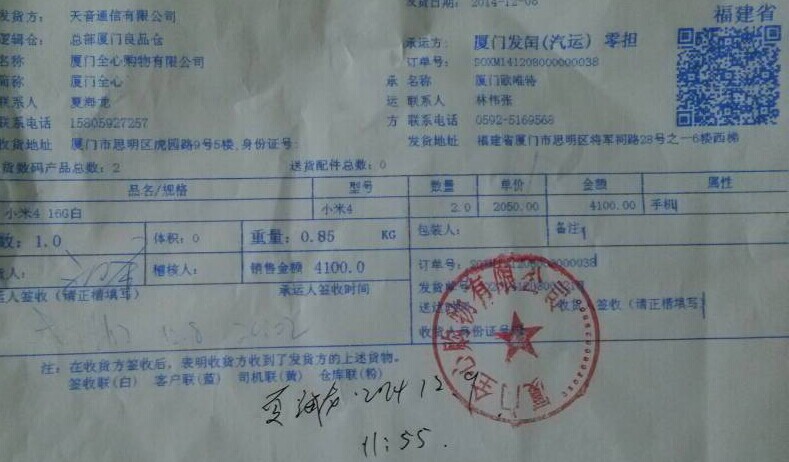 发货方： 天音通信有限公司
发货日期： 2014-12-08
福建省
逻辑仓： 总部厦门良品仓
承运方： 厦门发闰(汽运) 零担
名称 厦门全心购物有限公司
订单号： SOXM141208000000038
简称 厦门全心
承 名称 厦门欧唯特
联系人 夏海龙
运 联系人 林伟张
联系电话 15805927257
方 联系电话 0592-5169568
收货地址 厦门市思明区虎园路9号5楼,身份证号:
发货地址 福建省厦门市思明区将军祠路28号之一6楼西梯
货数码产品总数: 2 送货配件总数: 0
品名/规格 型号 数量 单价 金额 属性
小米4 16G白 小米4 2.0 2050.00 4100.00 手机
数: 1.0 体积: 0 重量: 0.85 KG 包装人: 备注:
货人: 稽核人: 销售金额 4100.0 订单号: SOXM141208000000038
运人签收（请正楷填写） 承运人签收时间
收货人签收（请正楷填写）
收货人身份证号码
厦门全心购物有限公司
注: 在收货方签收后, 表明收货方收到了发货方的上述货物。
签收联(白) 客户联(蓝) 司机联(黄) 仓库联(粉)
11:55.